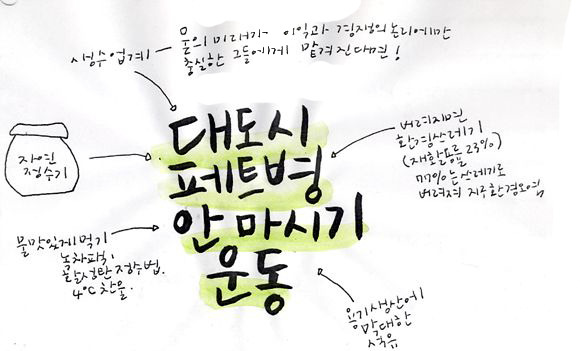 생수업계 — 물의 미래가 이익과 경쟁의 논리에만
충실한 그들에게 맡겨진다면!
대도시
페트병
안 마시기
운동
자연
정수기
버려지면
환경쓰레기
(재활용률 23%)
77%는 쓰레기로
버려져 지구환경오염
물맛있게먹기
녹차팩,
숯
4℃ 찬물.
용기생산에
막대한
석유